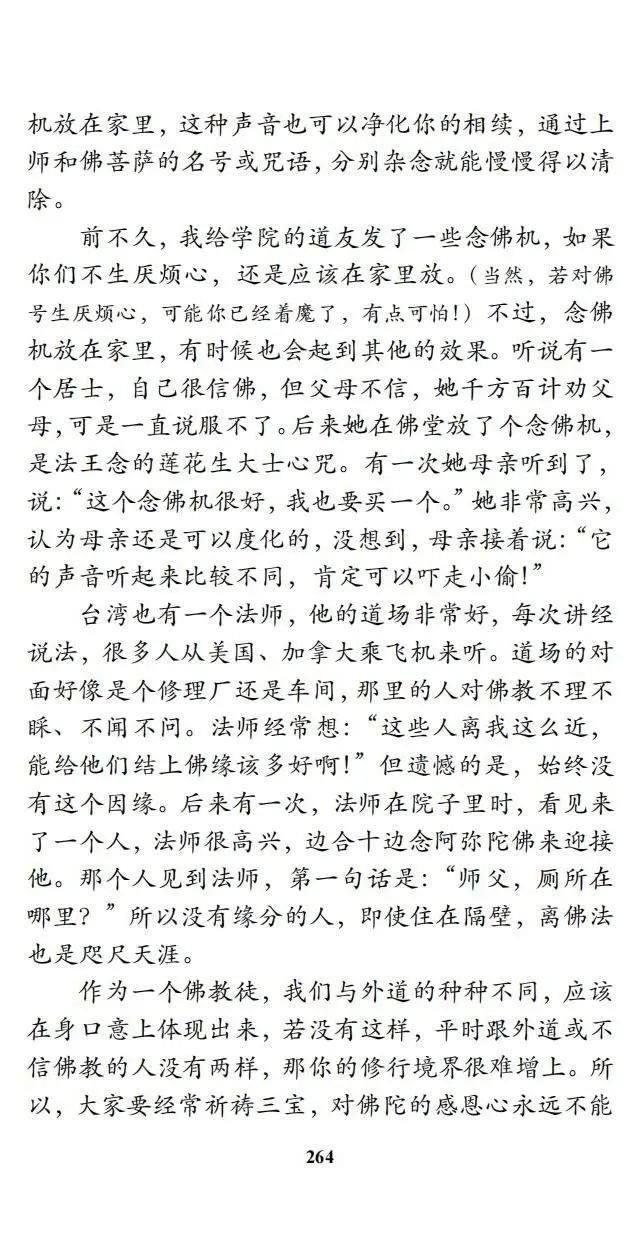 机放在家里，这种声音也可以净化你的相续，通过上
师和佛菩萨的名号或咒语，分别杂念就能慢慢得以清
除。
前不久，我给学院的道友发了一些念佛机，如果
你们不生厌烦心，还是应该在家里放。（当然，若对佛
号生厌烦心，可能你已经着魔了，有点可怕！）不过，念佛
机放在家里，有时候也会起到其他的效果。听说有一
个居士，自己很信佛，但父母不信，她千方百计劝父
母，可是一直说服不了。后来她在佛堂放了个念佛机，
是法王念的莲花生大士心咒。有一次她母亲听到了，
说：“这个念佛机很好，我也要买一个。”她非常高兴，
认为母亲还是可以度化的，没想到，母亲接着说：“它
的声音听起来比较不同，肯定可以吓走小偷！”
台湾也有一个法师，他的道场非常好，每次讲经
说法，很多人从美国、加拿大乘飞机来听。道场的对
面好像是个修理厂还是车间，那里的人对佛教不理不
睬、不闻不问。法师经常想：“这些人离我这么近，
能给他们结上佛缘该多好啊！”但遗憾的是，始终没
有这个因缘。后来有一次，法师在院子里时，看见来
了一个人，法师很高兴，边合十边念阿弥陀佛来迎接
他。那个人见到法师，第一句话是：“师父，厕所在
哪里？”所以没有缘分的人，即使住在隔壁，离佛法
也是咫尺天涯。
作为一个佛教徒，我们与外道的种种不同，应该
在身口意上体现出来，若没有这样，平时跟外道或不
信佛教的人没有两样，那你的修行境界很难增上。所
以，大家要经常祈祷三宝，对佛陀的感恩心永远不能
264